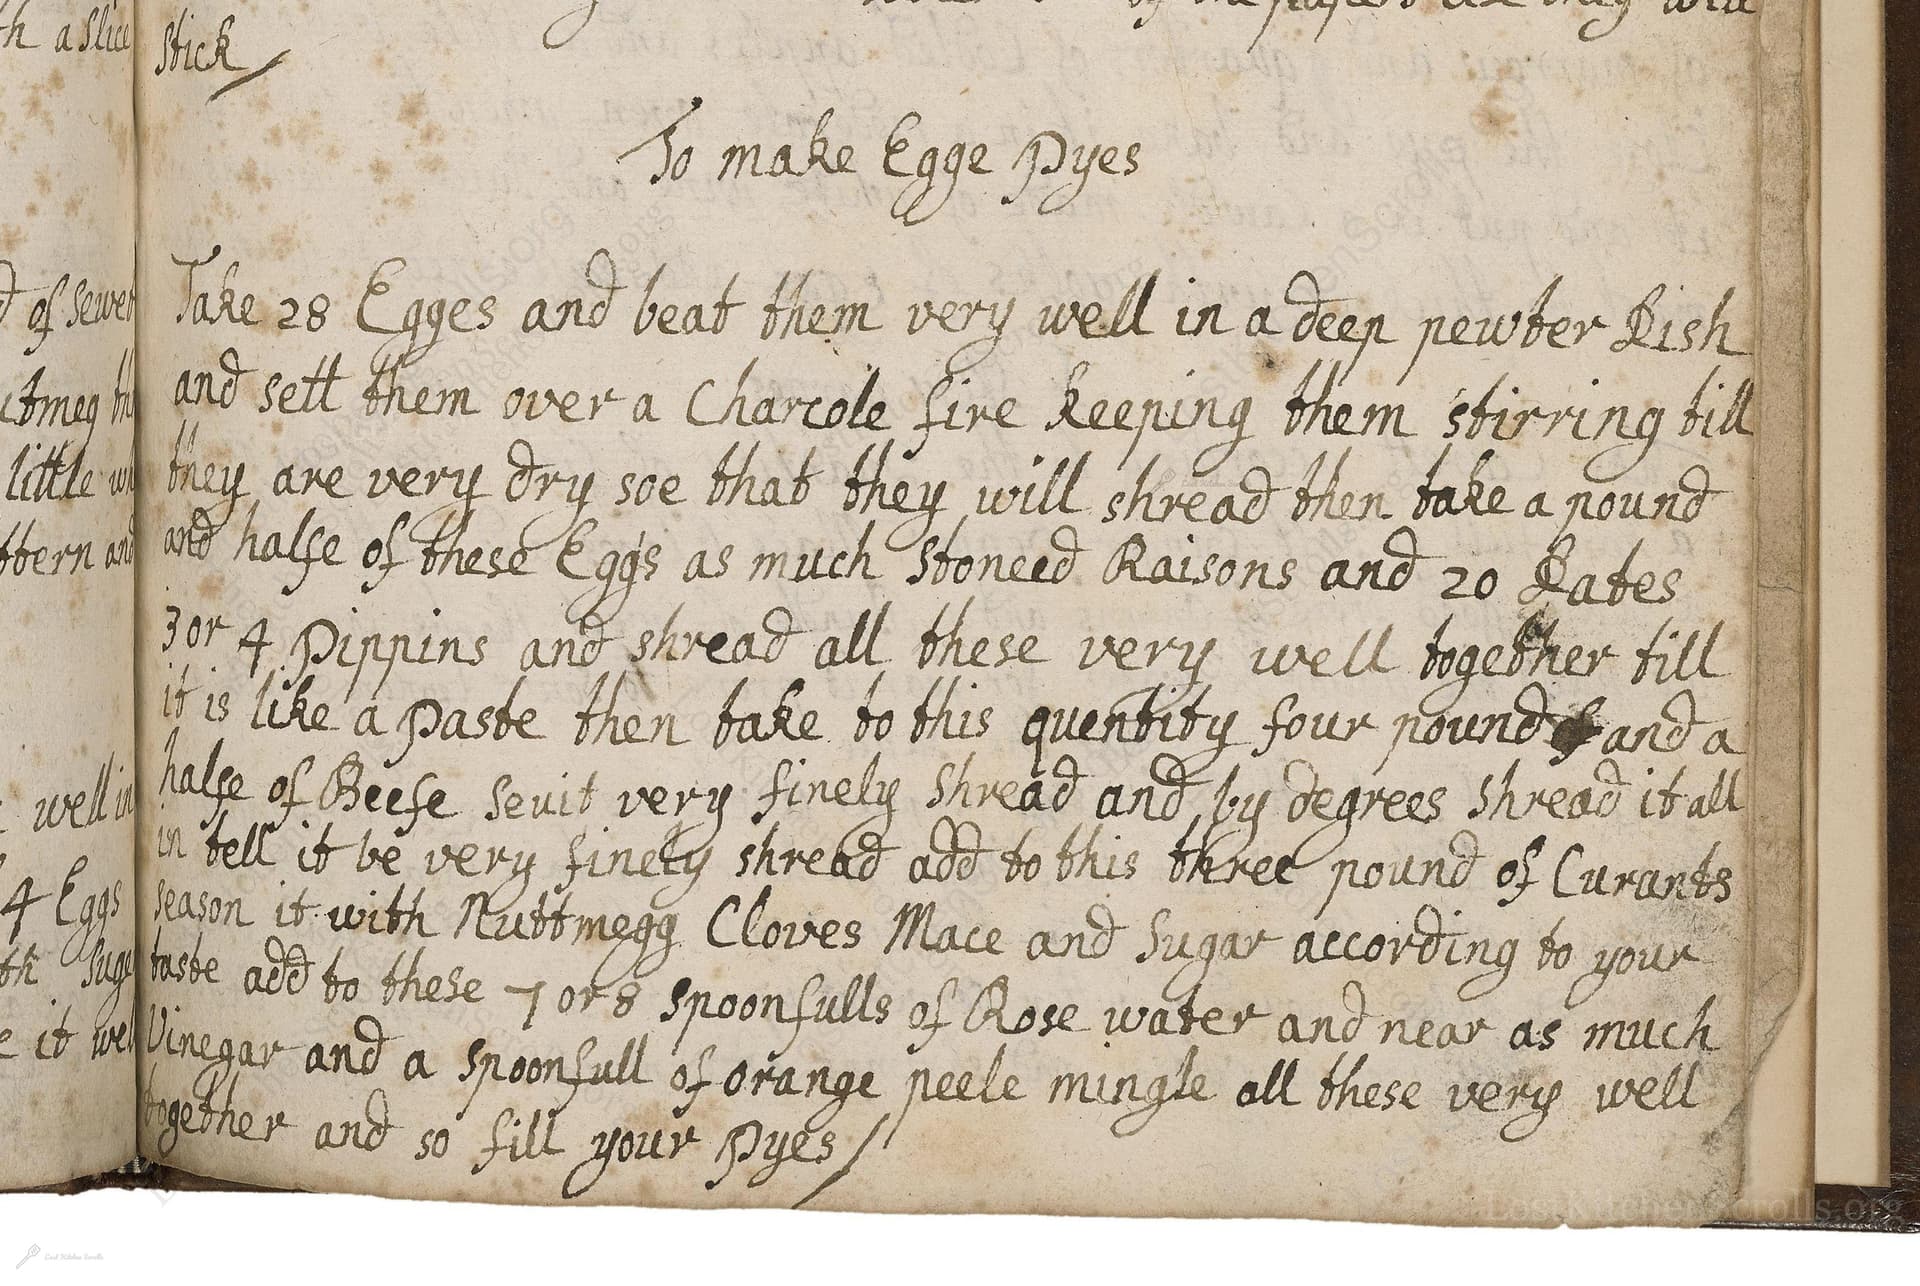 th a slice
d of sewet
utmeg th
little wh
ttern and
well in
4 Eggs
th Suga
e it wel
stick
To make Egge Pyes
Take 28 Egges and beat them very well in a deep pewter Dish
and sett them over a Charcole fire keeping them stirring till
they are very dry soe that they will shread then take a pound
and halfe of these Eggs as much stoneed Raisons and 20 Dates
3 or 4 Pippins and shread all these very well together till
it is like a Paste then take to this quentity four pound and a
halfe of Beefe seuit very finely shread and by degrees shread it all
in tell it be very finely shread add to this three pound of Curants
season it with Nuttmegg Cloves Mace and Sugar according to your
taste add to these 7 or 8 spoonfulls of Rose water and near as much
Vinegar and a spoonfull of orange peele mingle all these very well
together and so fill your Pyes
LostKitchenScrolls.org
Lost Kitchen Scrolls